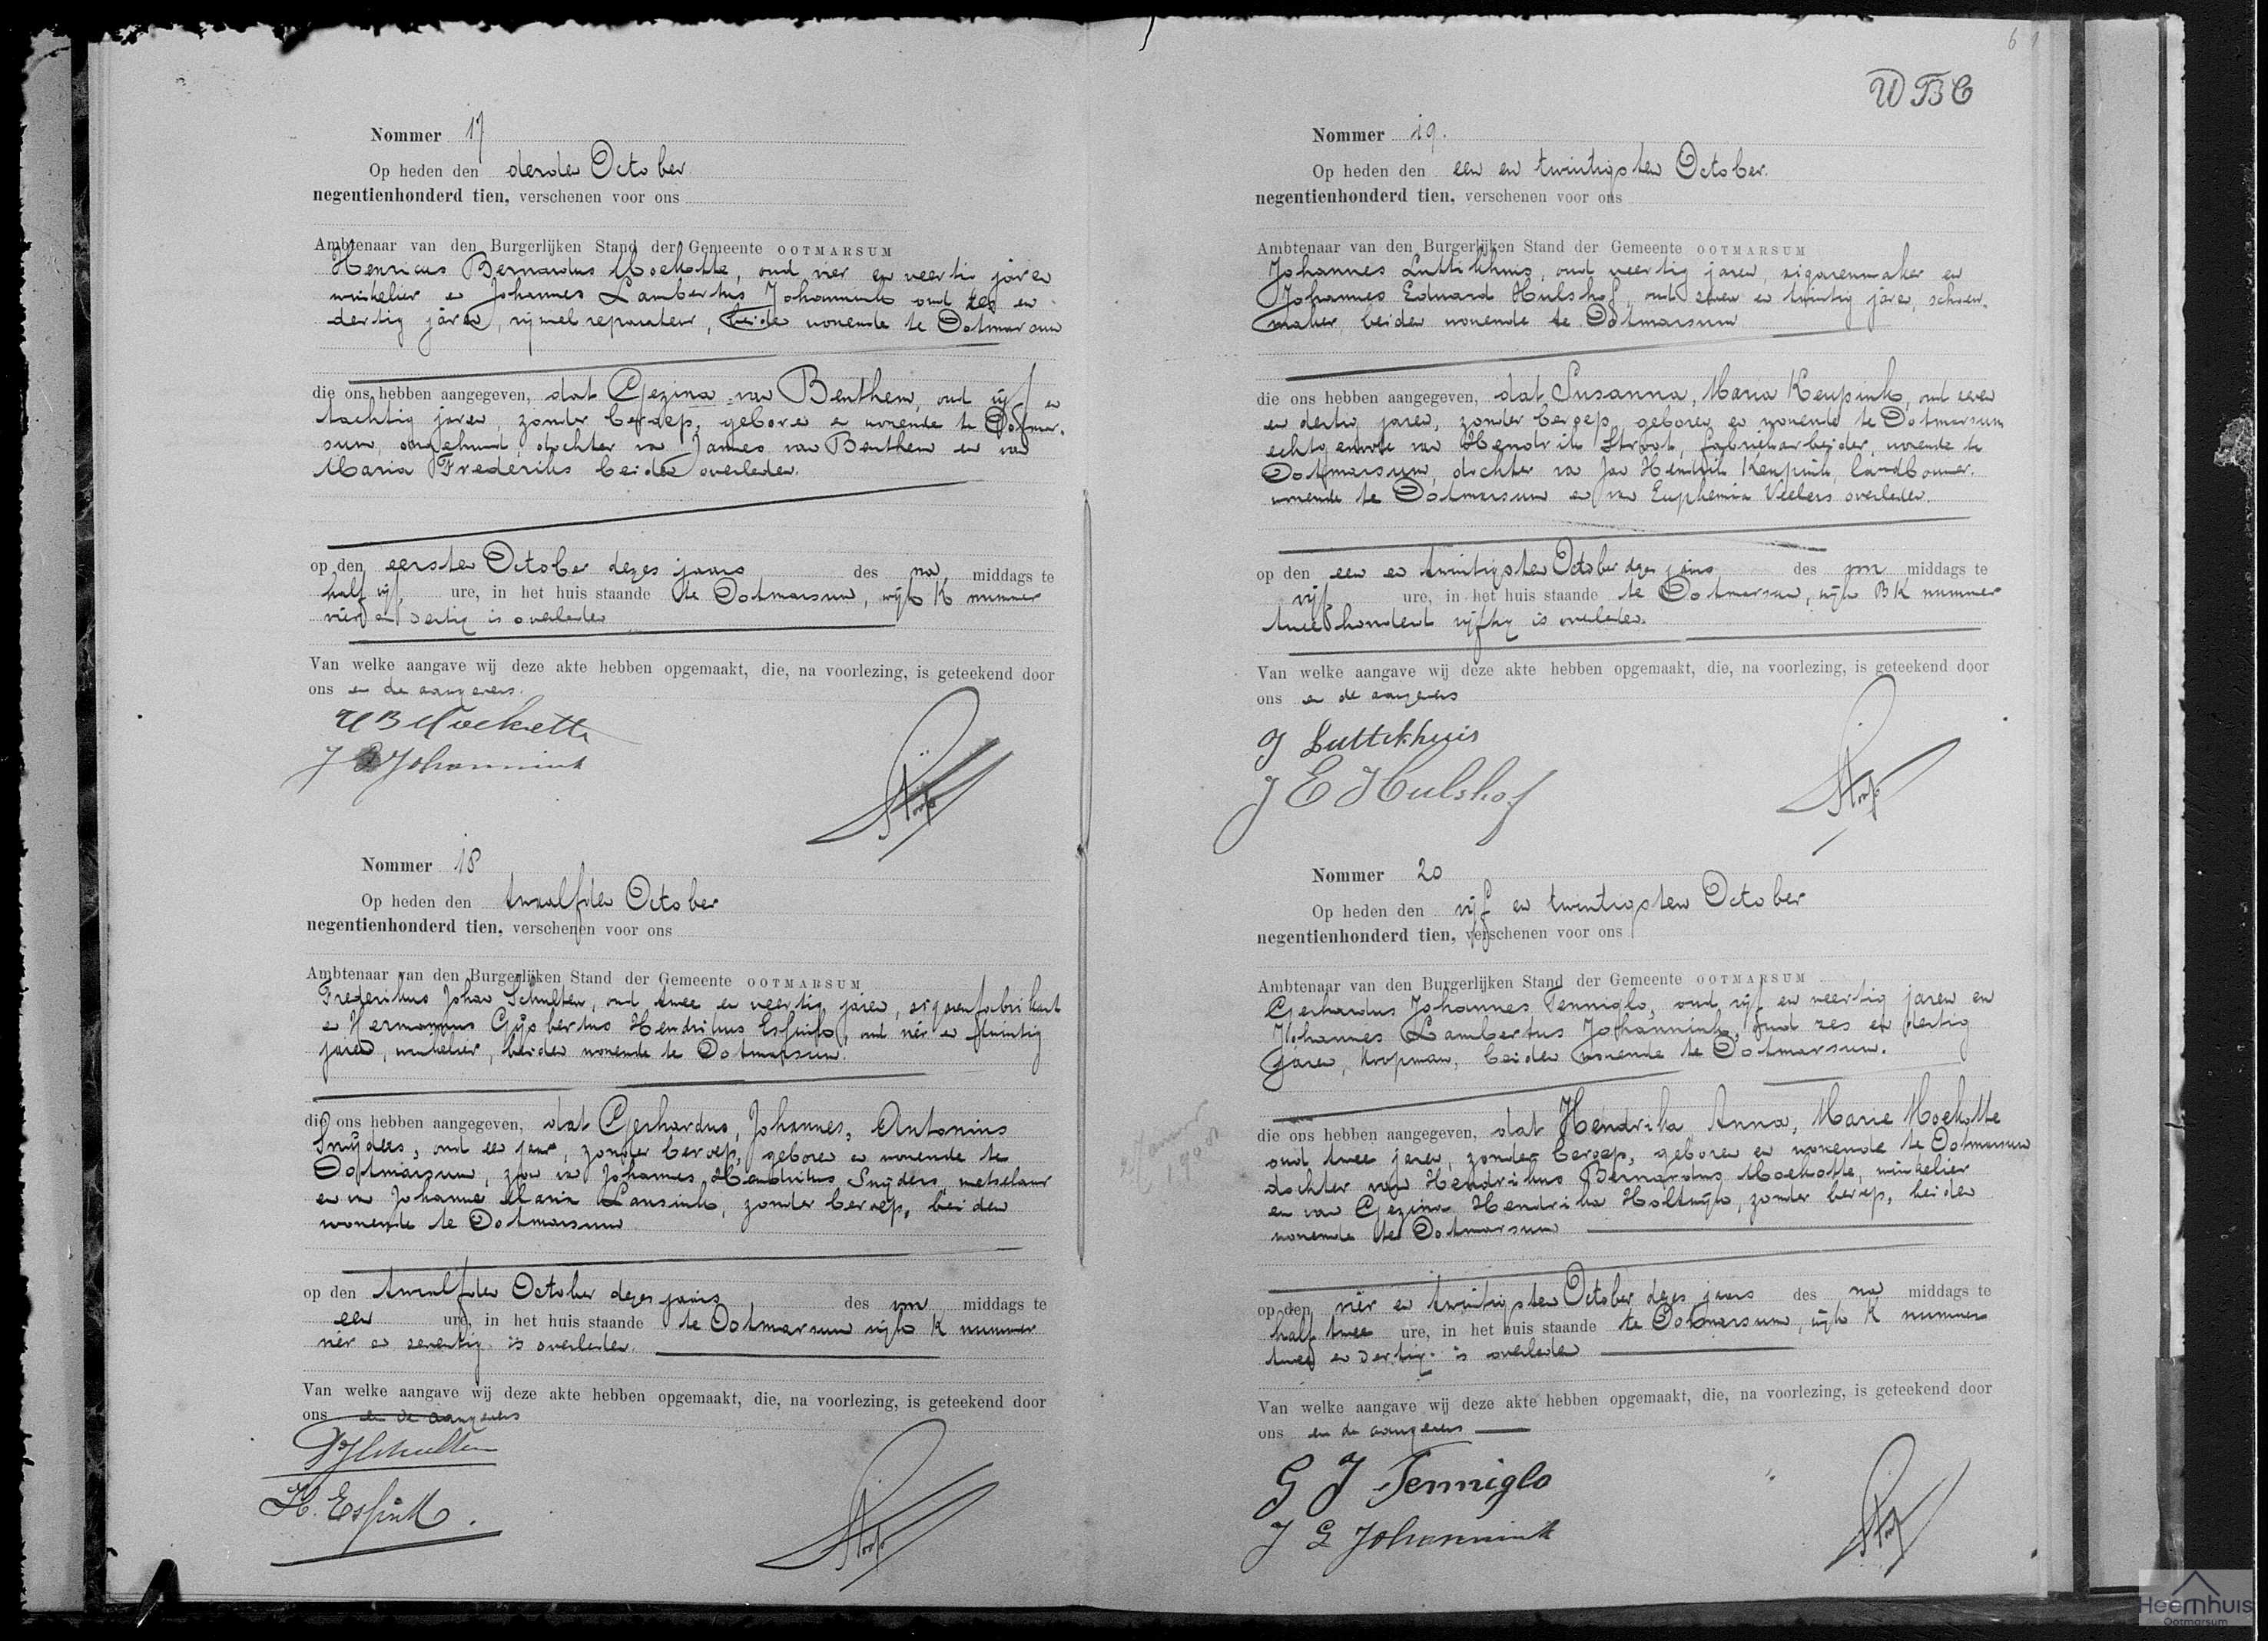 Nommer 17
Op heden den derden October
negentienhonderd tien, verschenen voor ons
Ambtenaar van den Burgerlijken Stand der Gemeente OOTMARSUM
Henricus Bernardus Moekotte, oud vier en veertig jaren
winkelier en Johannes Lambertus Johannink oud zes en
dertig jaren, rijwiel reparateur, beiden wonende te Ootmarsum
die ons hebben aangegeven, dat Gezina van Benthem, oud vijf en
tachtig jaren, zonder beroep, geboren en wonende te Ootmar-
sum, ongehuwd, dochter van Jannes van Benthem en van
Maria Frederiks beiden overleden.
op den eersten October dezes jaars des na middags te
half vijf ure, in het huis staande te Ootmarsum, wijk K nummer
vier en dertig is overleden
Van welke aangave wij deze akte hebben opgemaakt, die, na voorlezing, is geteekend door
ons en de aangevers.
HB Moekotte
J L Johannink
Nommer 18
Op heden den twaalfden October
negentienhonderd tien, verschenen voor ons
Ambtenaar van den Burgerlijken Stand der Gemeente OOTMARSUM
Frederikus Johan Schulten, oud twee en veertig jaren, sigarenfabrikant
en Hermannus Gijsbertus Hendrikus Essink, oud vier en twintig
jaren, winkelier, beiden wonende te Ootmarsum.
die ons hebben aangegeven, dat Gerhardus, Johannes, Antonius
Snijders, oud een jaar, zonder beroep, geboren en wonende te
Ootmarsum, zoon van Johannes Hendrikus Snijders metselaar
en van Johanna Maria Lansink, zonder beroep, beiden
wonende te Ootmarsum
op den twaalfden October dezes jaars des vm middags te
een ure, in het huis staande te Ootmarsum wijk K nummer
vier en zeventig is overleden.
Van welke aangave wij deze akte hebben opgemaakt, die, na voorlezing, is geteekend door
ons en de aangevers
FJSchulten
H. Essink.
61
WBC
Nommer 19.
Op heden den een en twintigsten October.
negentienhonderd tien, verschenen voor ons
Ambtenaar van den Burgerlijken Stand der Gemeente OOTMARSUM
Johannes Luttikhuis, oud veertig jaren, sigarenmaker en
Johannes Eduard Hulshof, oud zeven en twintig jaren, schoen-
maker, beiden wonende te Ootmarsum
die ons hebben aangegeven, dat Susanna, Maria Keupink, oud zeven
en dertig jaren, zonder beroep, geboren en wonende te Ootmarsum
echtgenoote van Hendrik Stroot, fabriekarbeider, wonende te
Ootmarsum, dochter van Jan Hendrik Keupink, landbouwer.
wonende te Ootmarsum en van Euphemia Veelers overleden.
op den een en twintigsten October dezes jaars des vm middags te
vijf ure, in het huis staande te Ootmarsum, wijk BK nummer
twee honderd vijftig is overleden.
Van welke aangave wij deze akte hebben opgemaakt, die, na voorlezing, is geteekend door
ons en de aangevers
J Luttikhuis
J E Hulshof
Nommer 20
Op heden den vijf en twintigsten October
negentienhonderd tien, verschenen voor ons
Ambtenaar van den Burgerlijken Stand der Gemeente OOTMARSUM
Gerhardus Johannes Tenniglo, oud vijf en veertig jaren en
Johannes Lambertus Johannink, oud zes en dertig
jaren, koopman, beiden wonende te Ootmarsum.
die ons hebben aangegeven, dat Hendrika Anna, Marie Moekotte
oud twee jaren, zonder beroep, geboren en wonende te Ootmarsum
dochter van Hendrikus Bernardus Moekotte, winkelier
en van Gezina Hendrika Holtwijk, zonder beroep, beiden
wonende te Ootmarsum
op den vier en twintigsten October dezes jaars des na middags te
half twee ure, in het huis staande te Ootmarsum, wijk K nummer
twee en dertig is overleden
Van welke aangave wij deze akte hebben opgemaakt, die, na voorlezing, is geteekend door
ons en de aangevers
G J Tenniglo
J L Johannink
Heemhuis
Ootmarsum